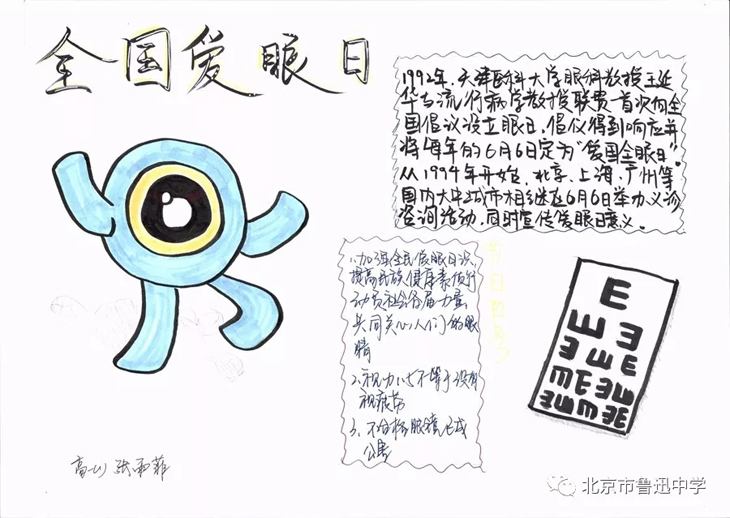 全国爱眼日
1992年,天津医科大学眼科教授王延
华与流行病学教授耿贯一首次向全
国倡议设立眼日,倡仪得到响应并
将每年的6月6日定为"爱国全眼日"。
从1994年开始,北京、上海、广州等
国内大中城市相继在6月6日举办义诊
咨询活动,同时宣传爱眼日意义。
1、加强全民爱眼日识,
提高民族健康素质行
动员社会各届力量
共同关心人们的眼
睛
2、视力1.5不等于没有
视疲劳
3、不合格眼镜已成
公害
节日内容
E
E E
E E E
E E E E
E E E E
高一(1) 张雨菲
北京市鲁迅中学